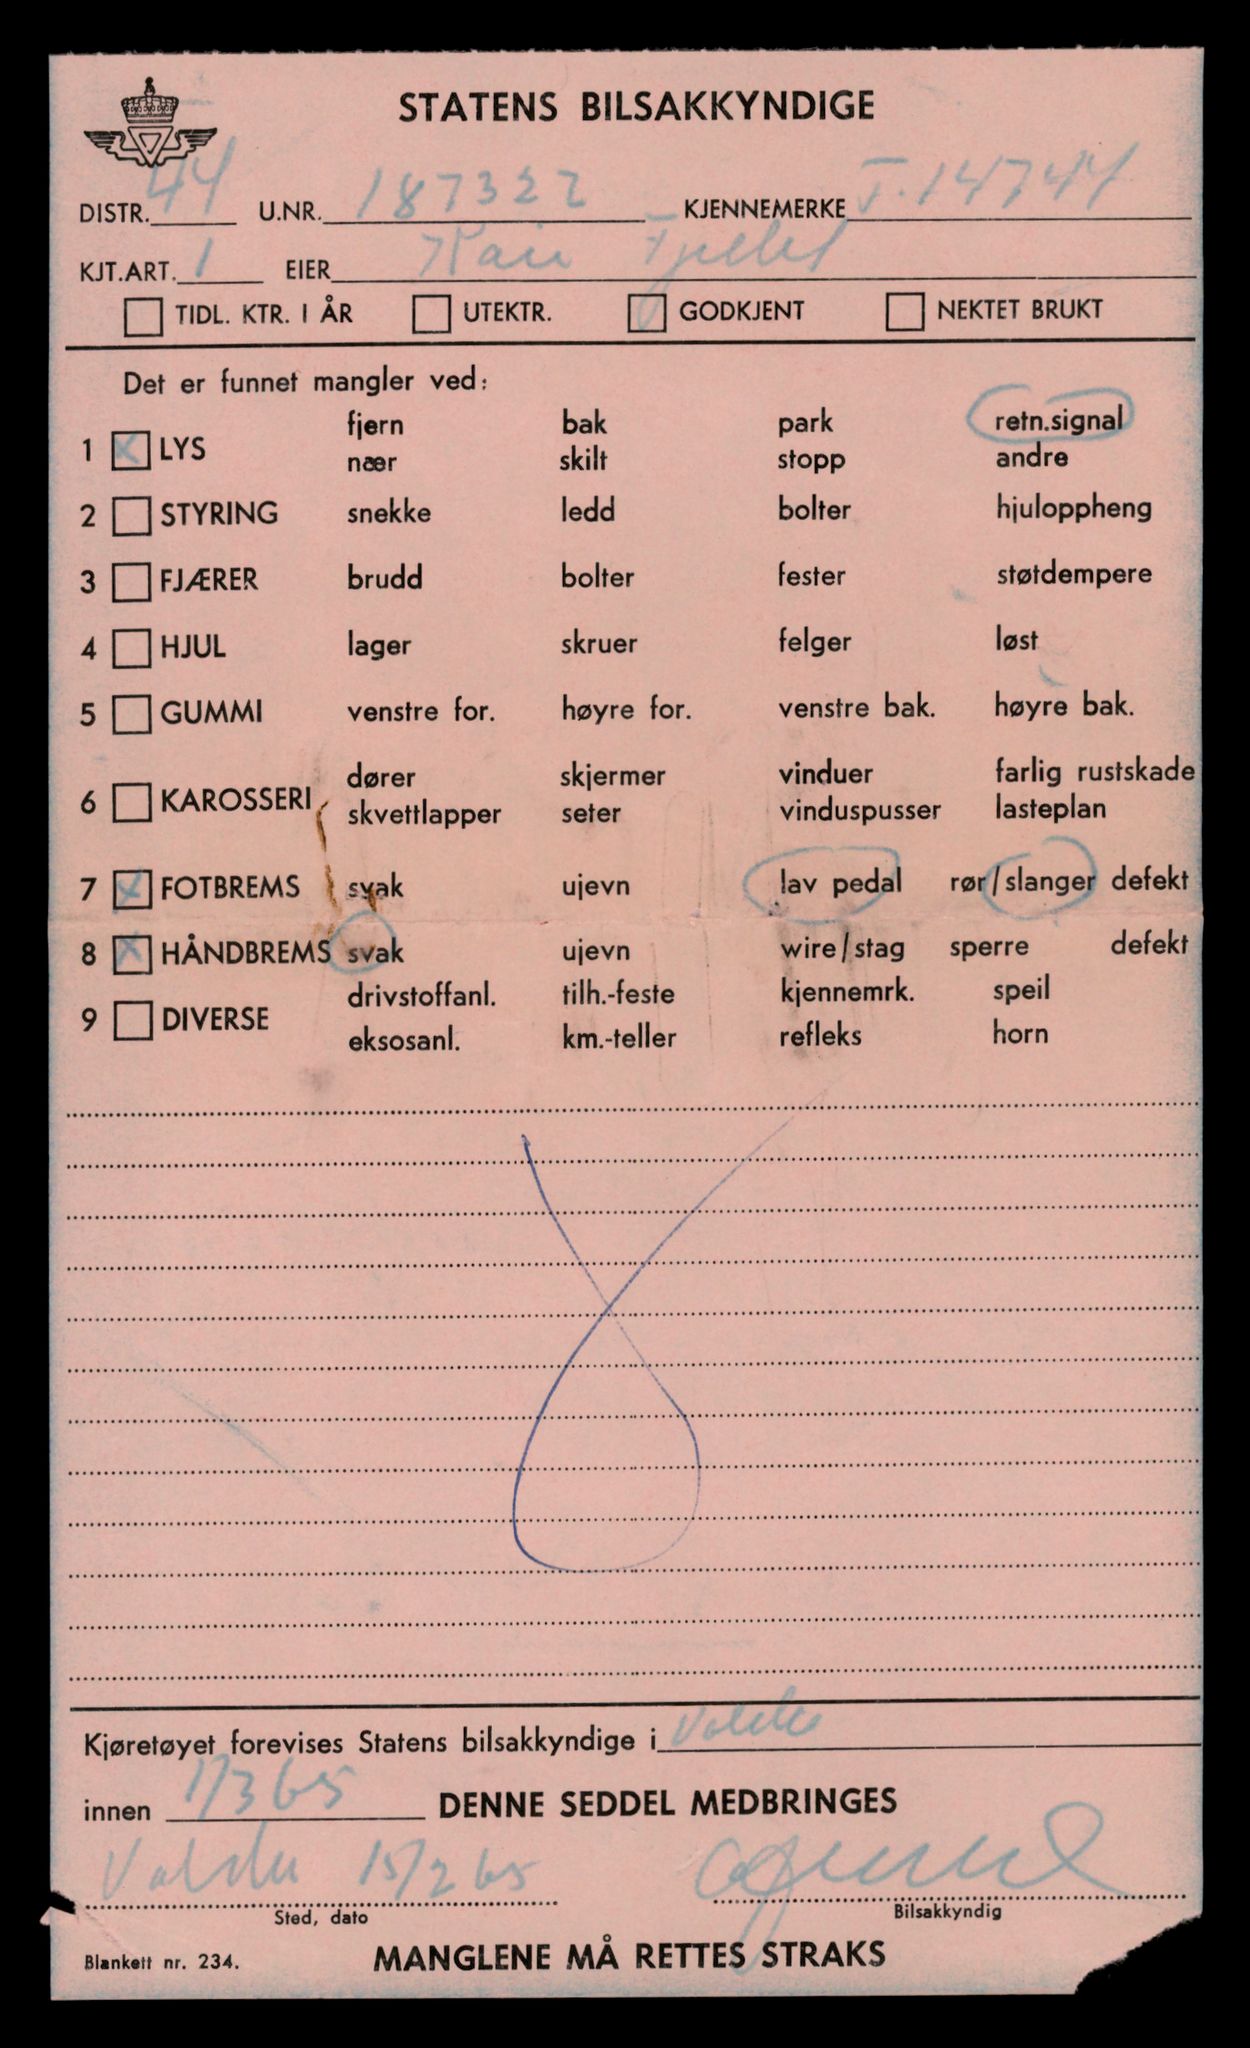 STATENS BILSAKKYNDIGE
DISTR. 44 U.NR. 187322 KJENNEMERKE T-14744
KJT.ART. 1 EIER Kåre
TIDL. KTR. I ÅR UTEKTR. GODKJENT NEKTET BRUKT
Det er funnet mangler ved:
fjern bak park retn.signal
1 x LYS
nær skilt stopp andre
2 STYRING snekke ledd bolter hjuloppheng
3 FJÆRER brudd bolter fester støtdempere
4 HJUL lager skruer felger løst
5 GUMMI venstre for. høyre for. venstre bak. høyre bak.
dører skjermer vinduer farlig rustskade
6 KAROSSERI
skvettlapper seter vinduspusser lasteplan
7 x FOTBREMS svak ujevn lav pedal rør/slanger defekt
8 x HÅNDBREMS svak ujevn wire/stag sperre defekt
drivstoffanl. tilh.-feste kjennemrk. speil
9 DIVERSE
eksosanl. km.-teller refleks horn
Kjøretøyet forevises Statens bilsakkyndige i Volda
innen 1/3 65 DENNE SEDDEL MEDBRINGES
Volda 15/2 65
Sted, dato Bilsakkyndig
Blankett nr. 234. MANGLENE MÅ RETTES STRAKS